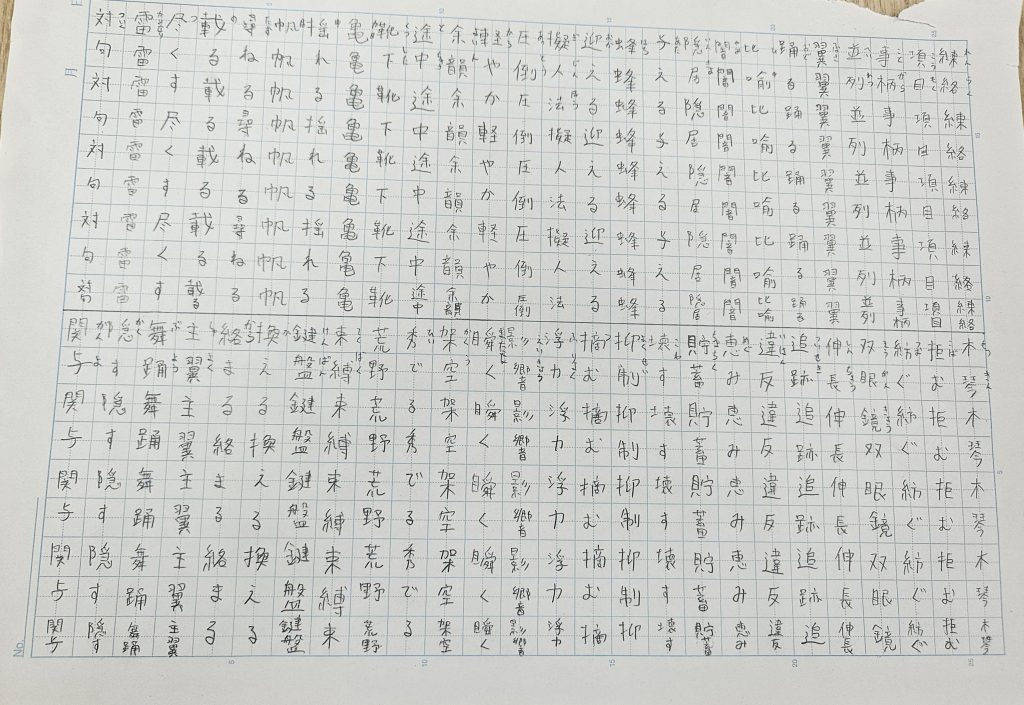 練絡練絡練絡練絡練絡
項目項目項目項目項目
事柄事柄事柄事柄事柄
並列並列並列並列並列
翼翼翼翼翼翼翼翼翼
踊る踊る踊る踊る踊る
比喩比喩比喩比喩比喩
闇闇闇闇闇闇闇闇闇
隠居隠居隠居隠居隠居
与える与える与える
蜂蜂蜂蜂蜂蜂蜂蜂蜂
迎える迎える迎える
擬人法擬人法擬人法
圧倒圧倒圧倒圧倒圧倒
軽やか軽やか軽やか
余韻余韻余韻余韻余韻
途中途中途中途中途中
靴下靴下靴下靴下靴
亀亀亀亀亀亀亀亀亀
揺れる揺れる揺れる
帆帆帆帆帆帆帆帆帆
尋ねる尋ねる尋ねる
載る載る載る載る載る
尽くす尽くす尽くす
雷雷雷雷雷雷雷雷雷
対句対句対句対句対句
木琴木琴木琴木琴木琴
拒む拒む拒む拒む拒む
紡ぐ紡ぐ紡ぐ紡ぐ紡ぐ
双眼鏡双眼鏡双眼鏡
伸長伸長伸長伸長伸長
追跡追跡追跡追跡追
違反違反違反違反違反
恵み恵み恵み恵み恵み
貯蓄貯蓄貯蓄貯蓄貯蓄
壊す壊す壊す壊す壊す
抑制抑制抑制抑制抑
摘む摘む摘む摘む摘
浮力浮力浮力浮力浮力
影響影響影響影響影響
瞬く瞬く瞬く瞬く瞬く
架空架空架空架空架空
秀でる秀でる秀でる
荒野荒野荒野荒野荒野
束縛束縛束縛束縛束
鍵盤鍵盤鍵盤鍵盤鍵盤
換える換える換える
絡まる絡まる絡まる
主翼主翼主翼主翼主翼
舞踊舞踊舞踊舞踊舞踊
隠す隠す隠す隠す隠す
関与関与関与関与関与
No.